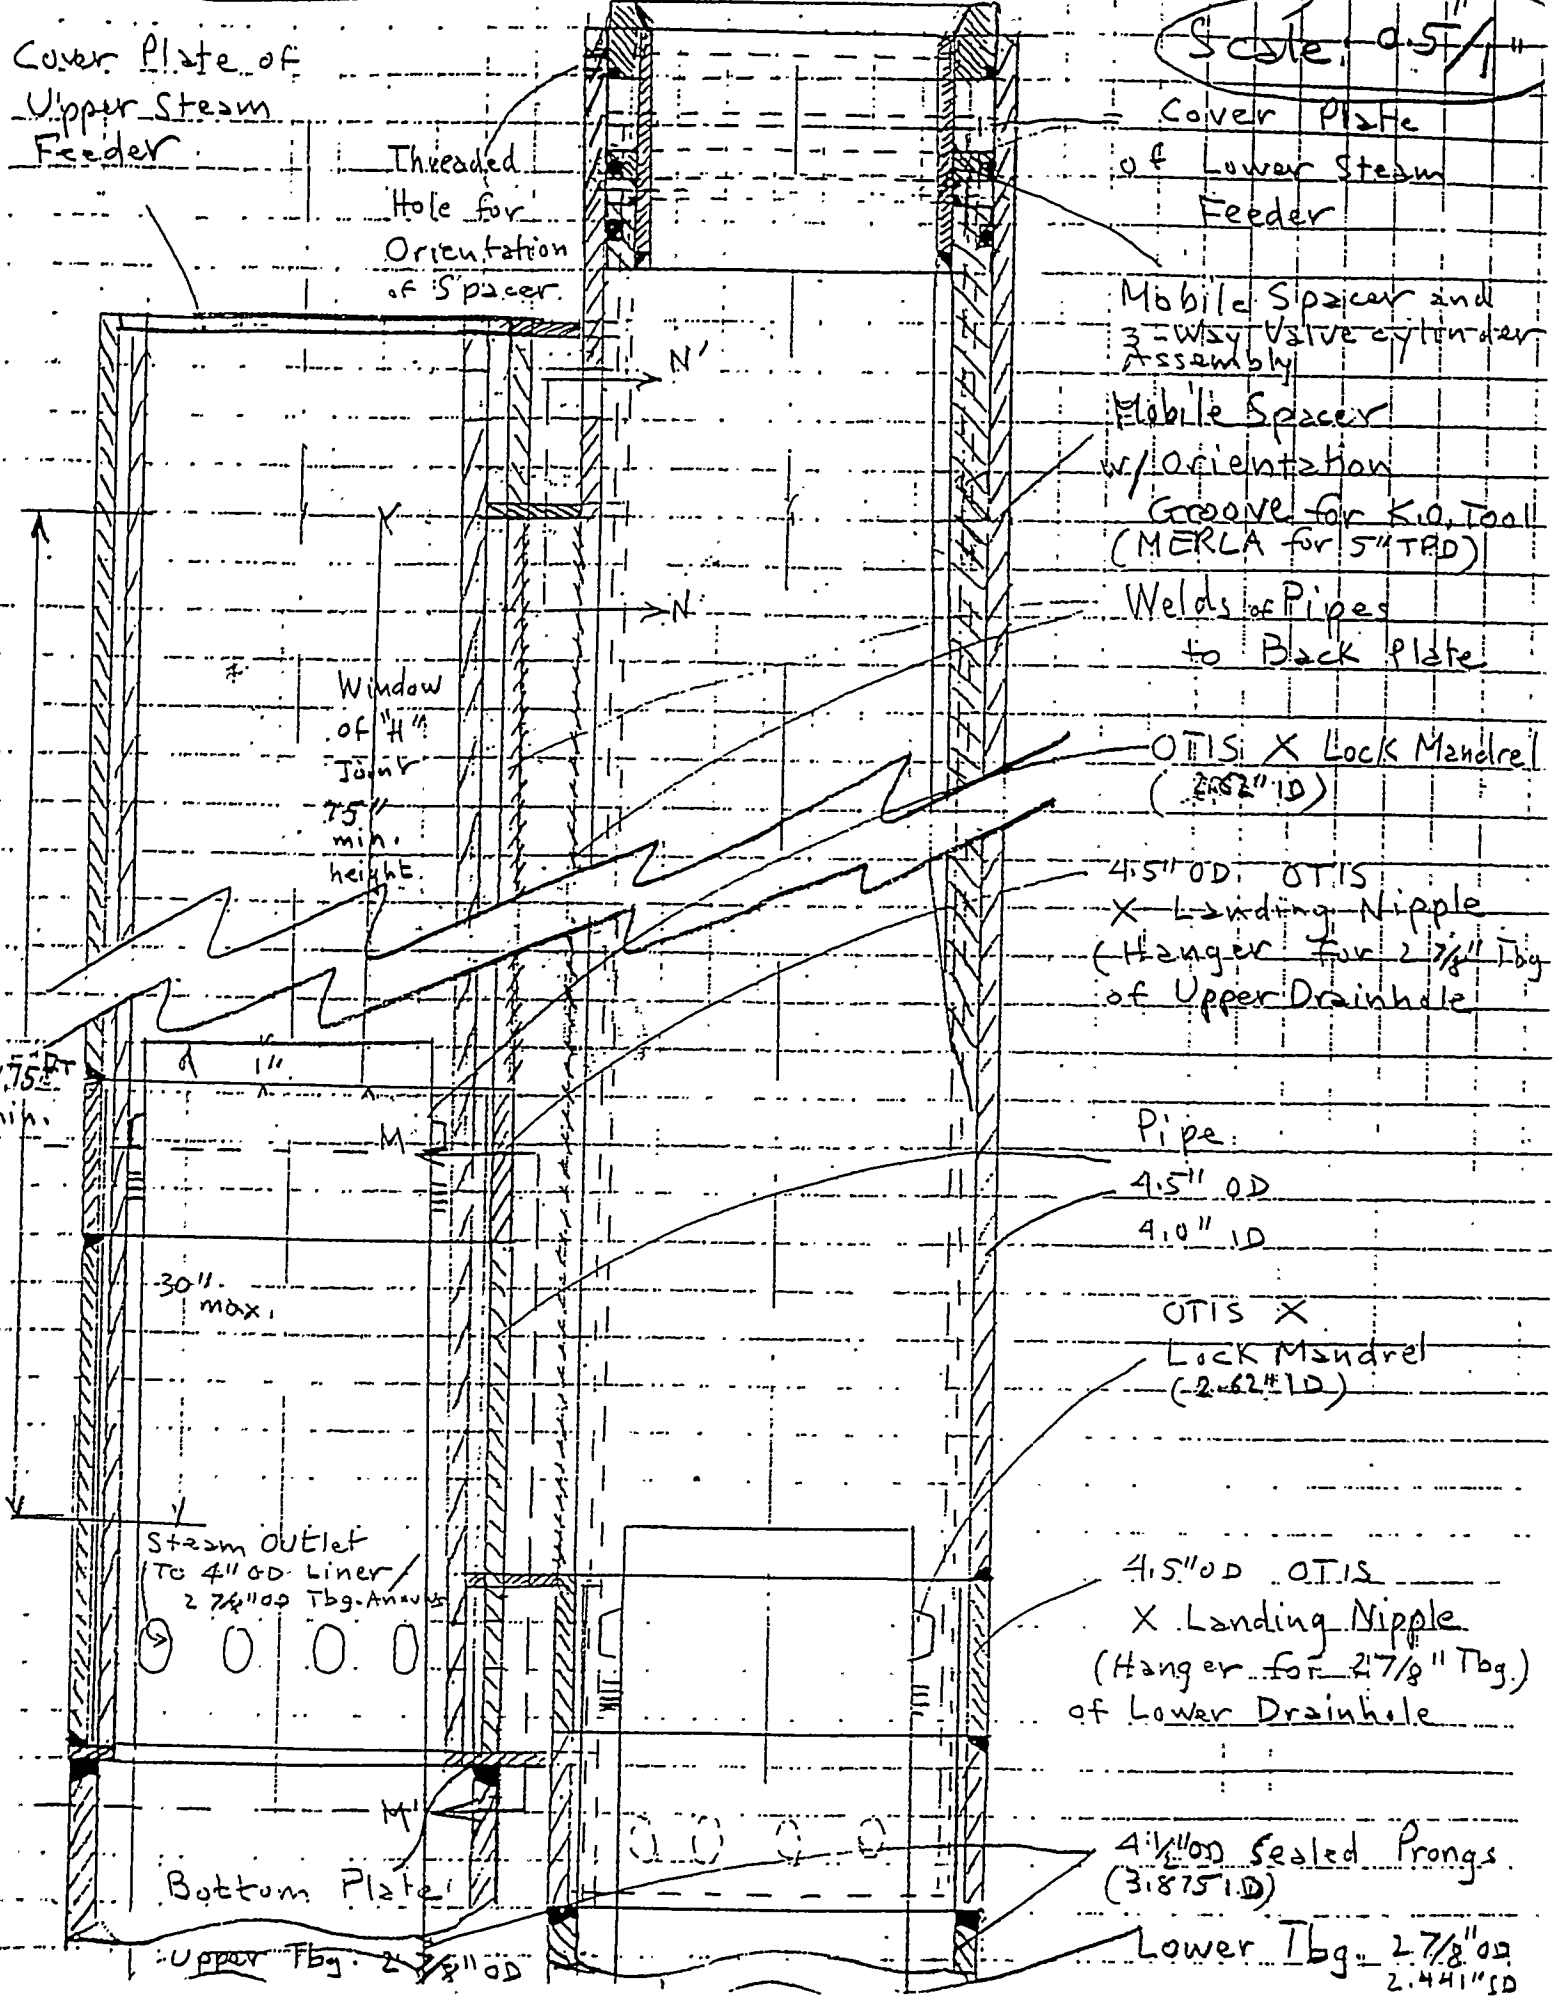 Scale: 0.5"/1"
Cover Plate of
Upper Steam
Feeder
Threaded
Hole for
Orientation
of Spacer.
Cover Plate
of Lower Steam
Feeder
Mobile Spacer and
3-Way Valve cylinder
Assembly
Mobile Spacer
w/ Orientation
Groove for K.O. Tool
(MERLA for 5" TPD)
Welds of Pipes
to Back Plate
N'
N
Window
of "H"
Joint
75"
min.
height
OTIS X Lock Mandrel
(2.62" ID)
4.5" OD OTIS
X Landing Nipple
(Hanger for 2 7/8" Tbg
of Upper Drainhole
1"
M
30"
max.
Pipe
4.5" OD
4.0" ID
OTIS X
Lock Mandrel
(2.62" ID)
Steam Outlet
To 4" OD Liner
2 7/8" OD Tbg. Annulus
4.5" OD OTIS
X Landing Nipple
(Hanger for 2 7/8" Tbg.)
of Lower Drainhole
M'
Bottom Plate
Upper Tbg. 2 7/8" OD
4 1/2" OD Sealed Prongs
(3.875 I.D)
Lower Tbg. 2 7/8" OD
2.441" ID